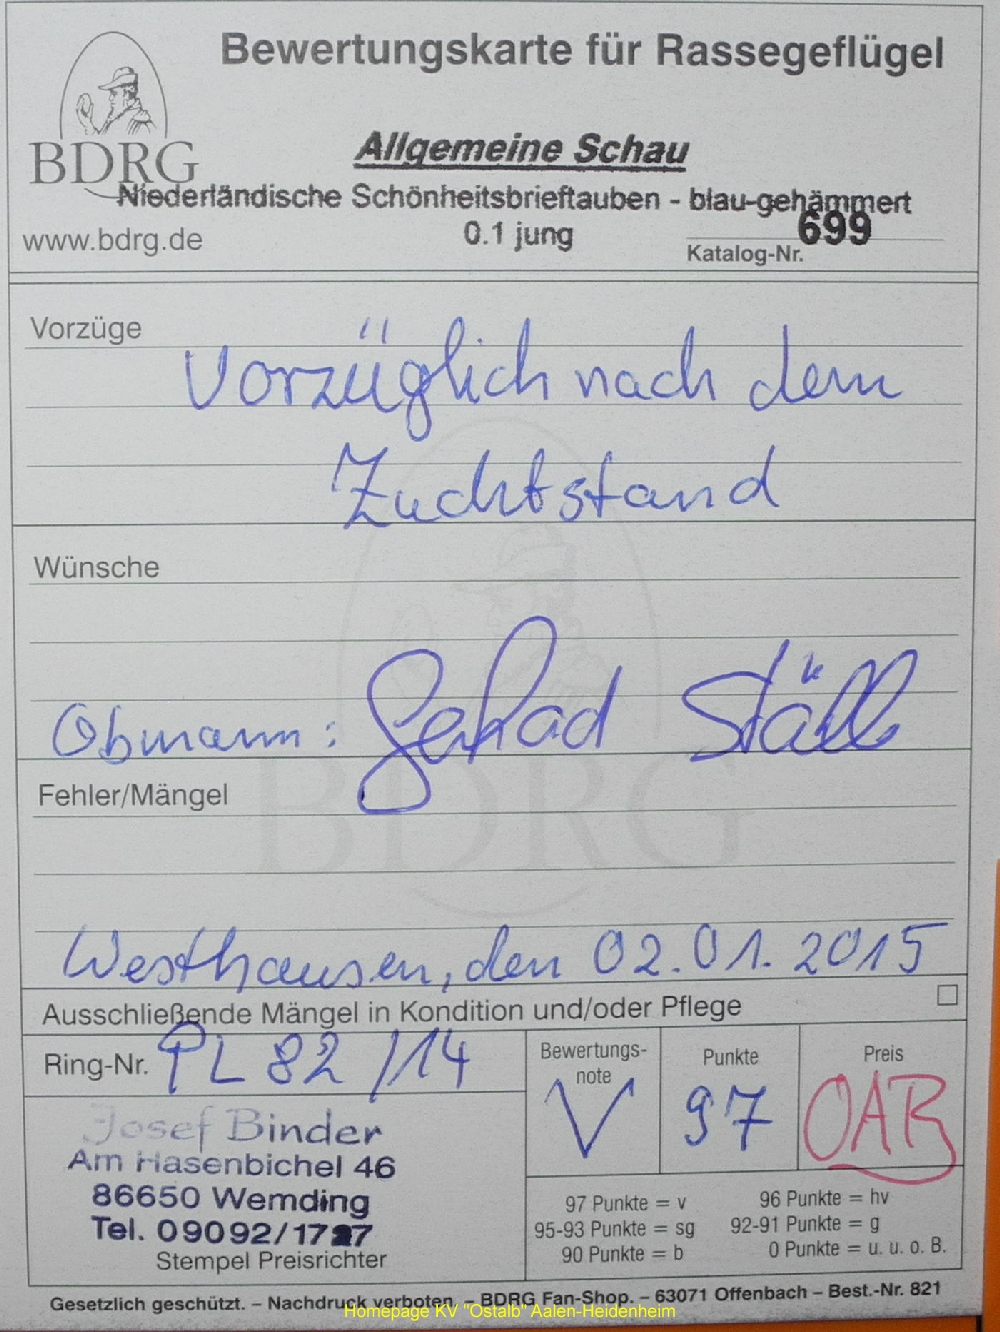 Bewertungskarte für Rassegeflügel
BDRG
Allgemeine Schau
Niederländische Schönheitsbrieftauben - blau-gehämmert
www.bdrg.de
0.1 jung
699
Katalog-Nr.
Vorzüge
Vorzüglich nach dem
Zuchtstand
Wünsche
Obmann: Ställe
Fehler/Mängel
BDRG
Westhausen, den 02.01.2015
Ausschließende Mängel in Kondition und/oder Pflege
Ring-Nr. PL 82 /14
Bewertungs-
note
V
Punkte
97
Preis
OAB
Josef Binder
Am Hasenbichel 46
86650 Wemding
Tel. 09092/17
Stempel Preisrichter
97 Punkte = v
96 Punkte = hv
95-93 Punkte = sg
92-91 Punkte = g
90 Punkte = b
0 Punkte = u. u. o. B.
Gesetzlich geschützt. – Nachdruck verboten. – BDRG Fan-Shop. – 63071 Offenbach – Best.-Nr. 821
Homepage KV "Ostalb" Aalen-Heidenheim